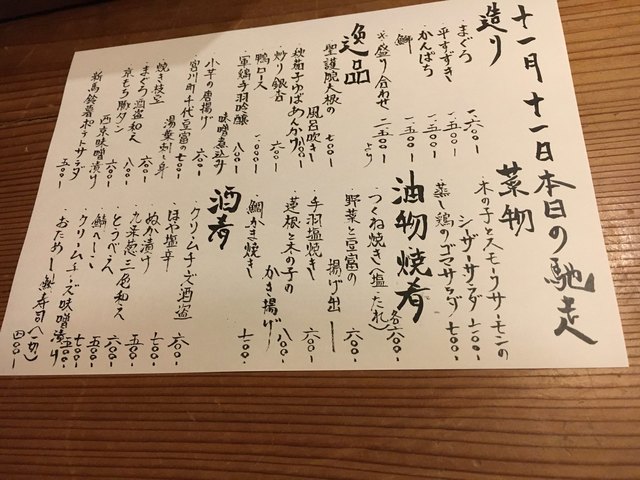 十一月十一日本日の馳走
造り
・まぐろ 一、六〇〇-
・平すずき 一、五〇〇-
・かんぱち 一、五〇〇-
・鰤 一、五〇〇-
・盛り合わせ 二、五〇〇-より
逸品
・聖護院大根の
風呂吹き 七〇〇-
・秋茄子ゆばあんかけ 八〇〇-
・炒り銀杏 六〇〇-
・鴨ロース 一、〇〇〇-
・軍鶏手羽吟醸
味噌煮込み 八〇〇-
・小芋の唐揚げ 六〇〇-
・宮川町千代豆富の
湯葉刺し身 七〇〇-
・焼き枝豆
・まぐろ酒盗和え 六〇〇-
・京もち豚タン
西京味噌漬け 八〇〇-
・新馬鈴薯ポテトサラダ 五〇〇-
菜物
・木の子とスモークサーモンの
シーザーサラダ 一、五〇〇-
・蒸し鶏のゴマサラダ 七〇〇-
油物焼肴
・つくね焼き(塩・たれ) 各六〇〇-
・野菜と豆富の
揚げ出し 六〇〇-
・手羽塩焼き 六〇〇-
・蓮根と木の子の
かき揚げ 八〇〇-
・鯛かま焼き 七〇〇-
酒肴
・クリームチーズ酒盗 六〇〇-
・ほや塩辛 六〇〇-
・ぬか漬け 七〇〇-
・九条葱三尾和え 五〇〇-
・とうべえ 六〇〇-
・鯖へしこ 七〇〇-
・クリームチーズ味噌漬け 五〇〇-
・おためし鮒寿司(一切) 四〇〇-